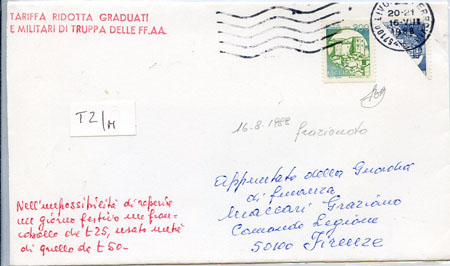 TARIFFA RIDOTTA GRADUATI
E MILITARI DI TRUPPA DELLE FF.AA.
57100 LIVO
20-21
16.VIII
T2/M
16.8.1988
frazionato
Appuntato della Guardia
di finanza
Maccari Graziano
Comando Legione
50100 Firenze
Nell'impossibilità di reperire
un giorno festivo un fran-
cobollo da £25, usato metà
di quello da £50-